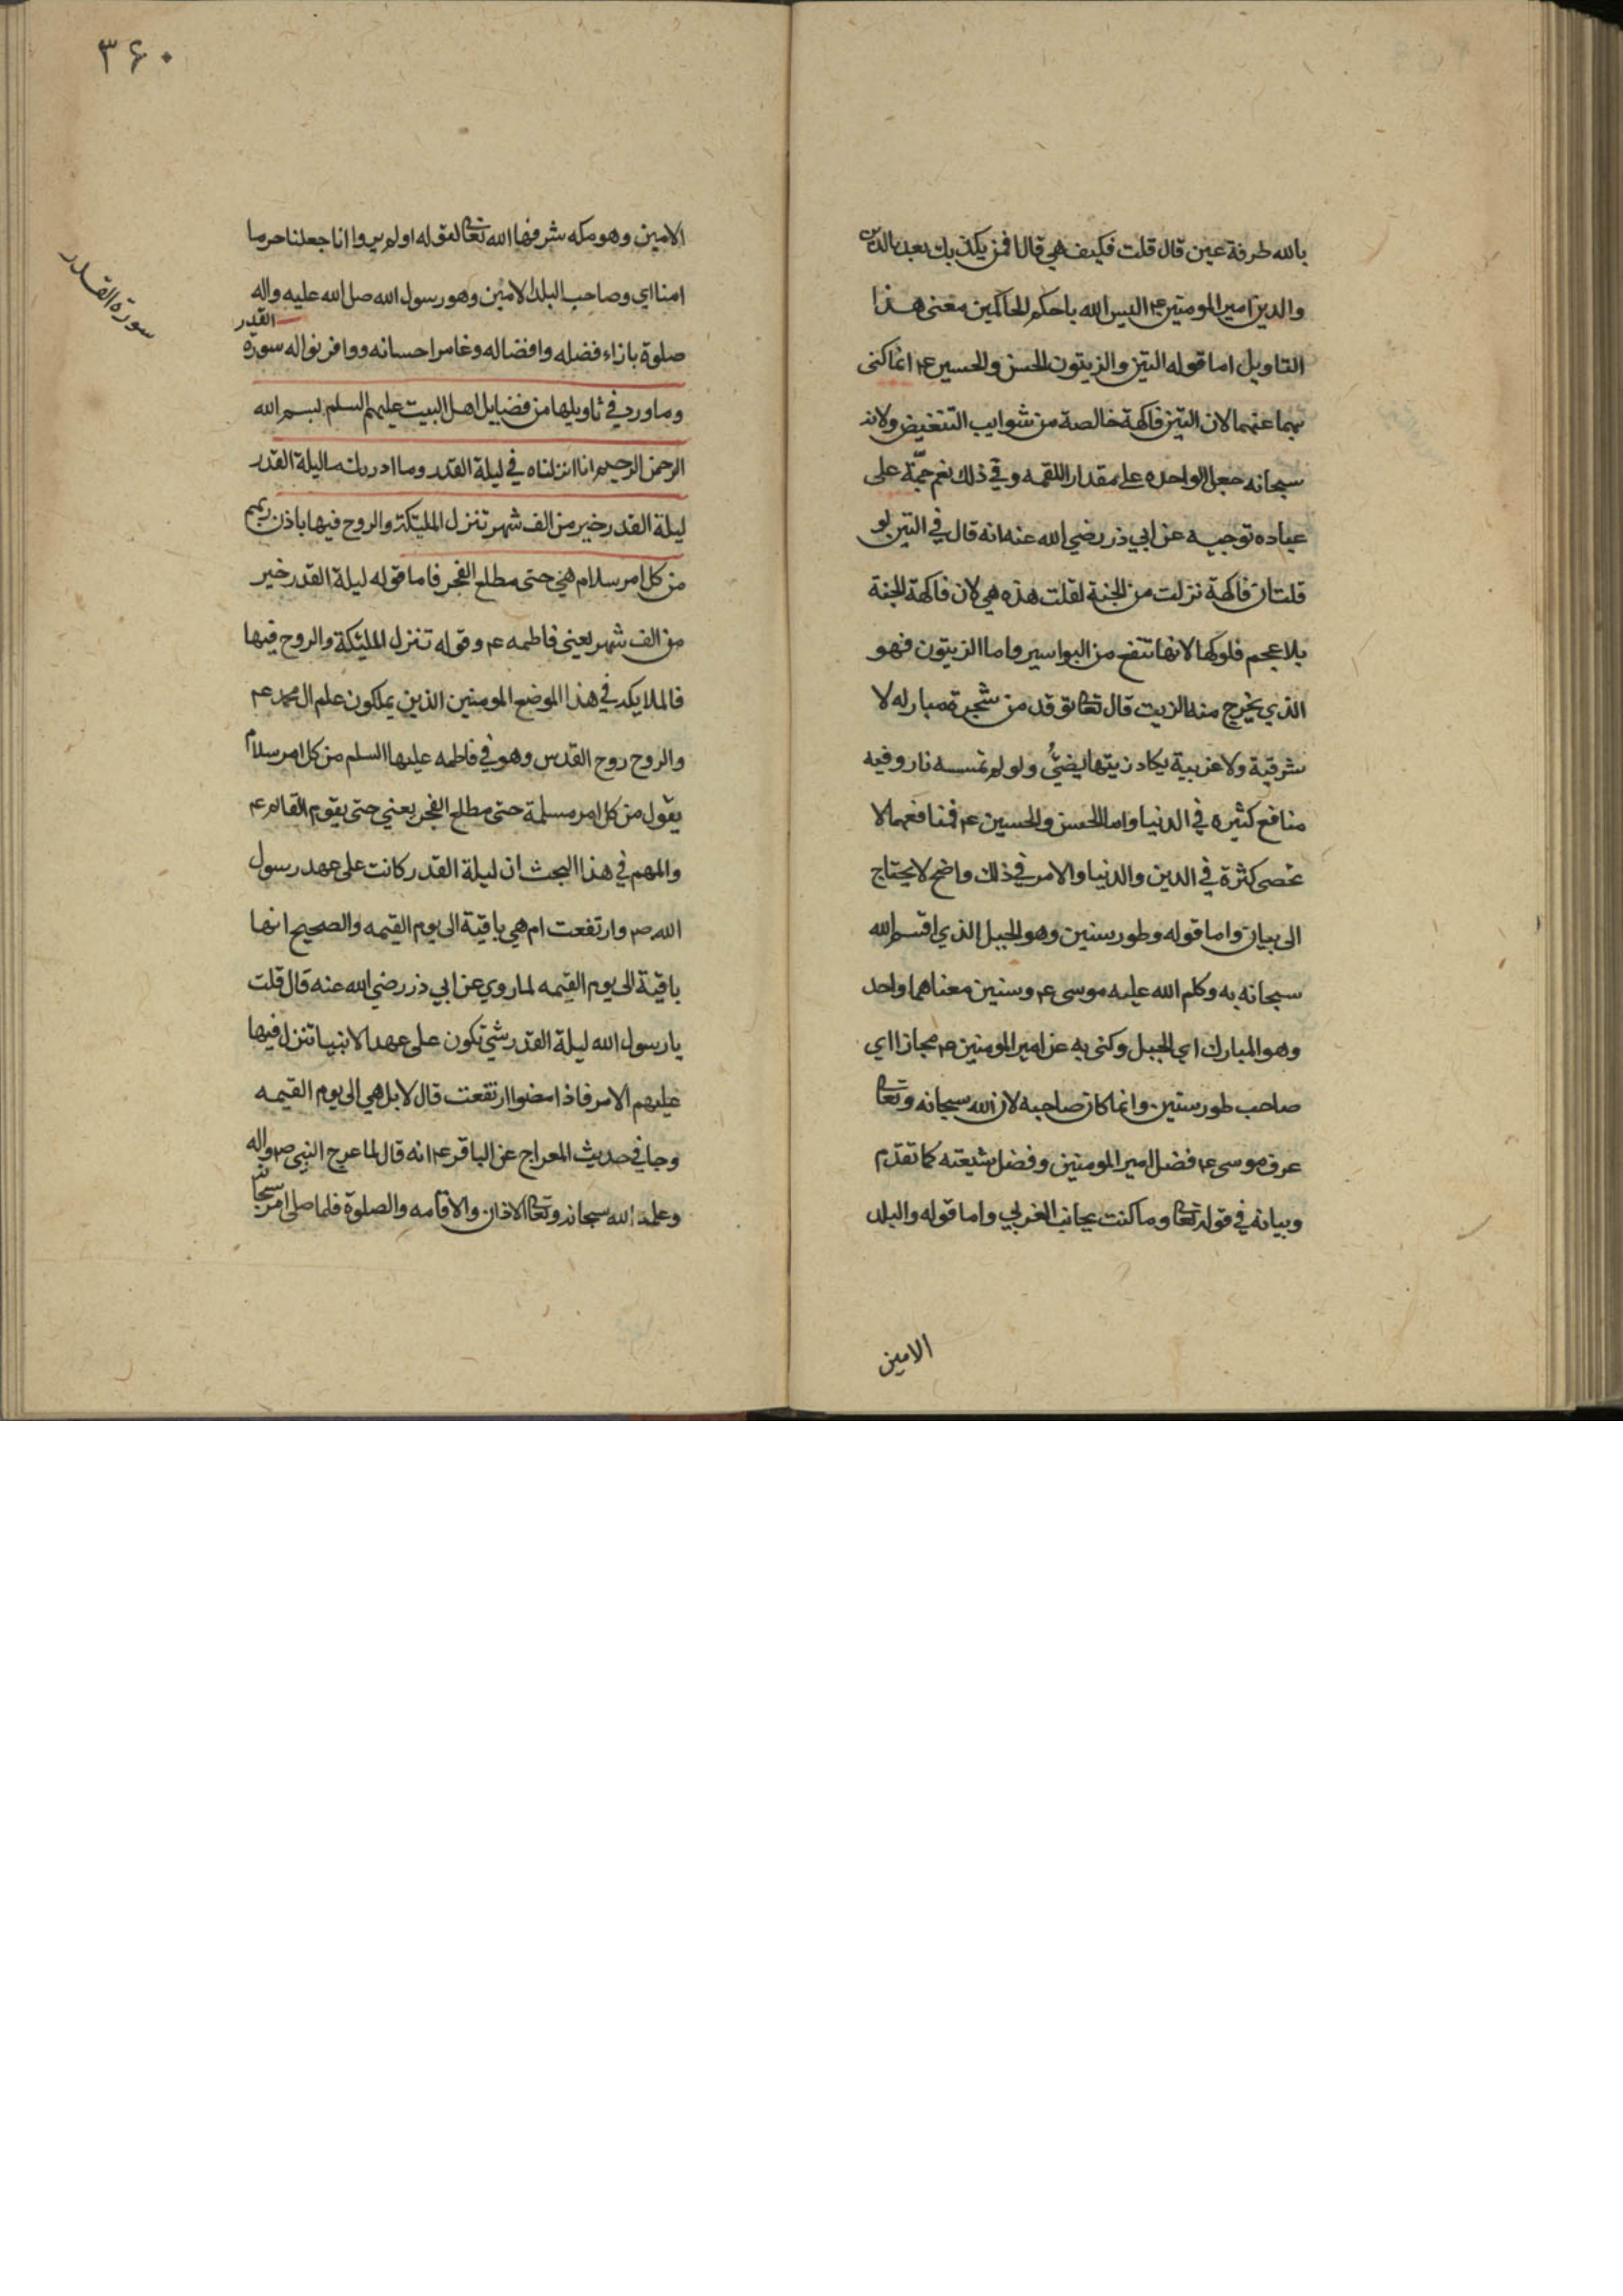 بالله طرفة عين قال قلت فكيف هي قال فمن يكذبك بعد بالدين
والدين امير المومنين ع اليس الله باحكم الحاكمين معنى هذا
التاويل اما قوله التين والزيتون الحسن والحسين ع انما كنى
بهما عنهما لان التين فاكهة خالصة من شوايب التنغيص ولانه
سبحانه جعل الواحده على مقدار اللقمه وفي ذلك نعم جمّة على
عباده توجيه عن ابي ذر رضي الله عنه انه قال في التين لو
قلت ان فاكهة نزلت من الجنة لقلت هذه هي لان فاكهة الجنة
بلا عجم فلوكها لانها تنفع من البواسير واما الزيتون فهو
الذي يخرج منه الزيت قال تعالى توقد من شجرة مباركه لا
شرقية ولا غربية يكاد زيتها يضيُ ولو لم تمسسه نار وفيه
منافع كثيره في الدنيا واما الحسن والحسين ع فمنافعهما لا
تحصى كثرة في الدين والدنيا والامر في ذلك واضح لا يحتاج
الى بيان واما قوله وطور سنين وهو الجبل الذي اقسم الله
سبحانه به وكلم الله عليه موسى ع وسنين معناهما واحد
وهو المبارك اي الجبل وكنى به عن امير المومنين ع مجازا اي
صاحب طور سنين وانما كان صاحبه لان الله سبحانه وتعالى
عرف موسى ع فضل امير المومنين وفضل شيعته كما تقدم
وبيانه في قوله تعالى وما كنت بجانب الغربي واما قوله والبلد
الامين
٣۶٠
سورة القدر
الامين وهو مكه شرفها الله تعالى لقوله اولم يروا انا جعلنا حرما
امنا اي وصاحب البلد الامين وهو رسول الله صل الله عليه واله
صلوة بازاء فضله وافضاله وغامر احسانه ووافر نواله سورة القدر
وما ورد في تاويلها من فضايل اهل البيت عليهم السلم بسم الله
الرحمن الرحيم انا انزلناه في ليلة القدر وما ادريك ما ليلة القدر
ليلة القدر خير من الف شهر تنزل المليكة والروح فيها باذن ربهم
من كل امر سلام هي حتى مطلع الفجر فاما قوله ليلة القدر خير
من الف شهر يعني فاطمه ع وقوله تنزل المليكة والروح فيها
فالملايكه في هذا الموضع المومنين الذين يملكون علم ال محمد ع
والروح روح القدس وهو في فاطمه عليها السلم من كل امر سلام
يقول من كل امر مسلمة حتى مطلع الفجر يعني حتى يقوم القائم ع
والمهم في هذا البحث ان ليلة القدر كانت على عهد رسول
الله ص وارتفعت ام هي باقية الى يوم القيمه والصحيح انها
باقية الى يوم القيمه لما روي عن ابي ذر رضي الله عنه قال قلت
يا رسول الله ليلة القدر شي تكون على عهد الانبيا تنزل فيها
عليهم الامر فاذا مضوا ارتفعت قال لا بل هي الى يوم القيمه
وجا في حديث المعراج عن الباقر ع انه قال لما عرج النبي ص واله
وعلمه الله سبحانه وتعالى الاذان والاقامه والصلوة فلما صلى امره سبحانه